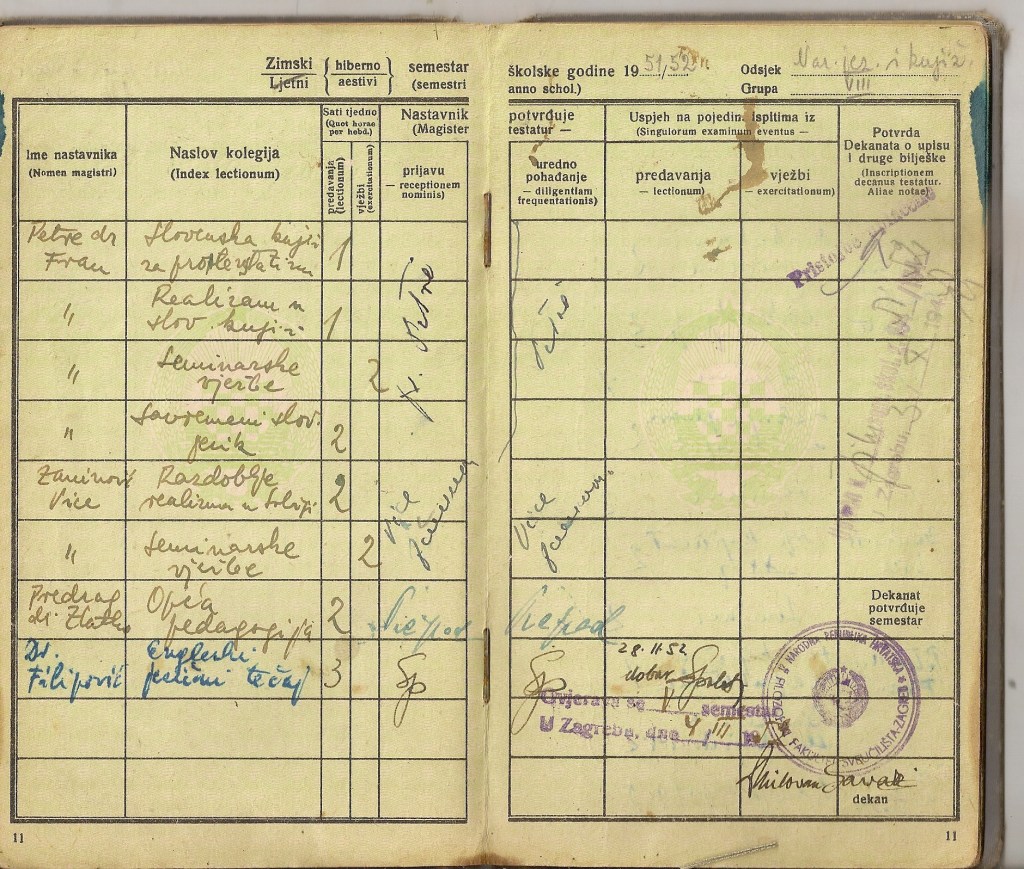 Zimski hiberno semestar
Ljetni aestivi (semestri
školske godine 1951/52
anno schol.)
Odsjek Nar. jez. i knjiž.
Grupa VIII
Ime nastavnika
(Nomen magistri)
Naslov kolegija
(Index lectionum)
Sati tjedno
(Quot horae
per hebd.)
predavanja
(lectionum)
vježbi
(exercitationum)
Nastavnik
(Magister
prijavu
— receptionem
nominis)
potvrđuje
testatur —
uredno
pohađanje
— diligentiam
frequentationis)
Uspjeh na pojedinim ispitima iz
(Singulorum examinum eventus —
predavanja
— lectionum)
vježbi
— exercitationum)
Potvrda
Dekanata o upisu
i druge bilješke
(Inscriptionem
decanus testatur.
Aliae notae)
Petre dr
Fran
Slovenska knjiž.
za protestantizma
1
Fr. Petrè
Petrè
"
Realizam u
slov. knjiž.
1
"
Seminarske
vježbe
2
"
Savremeni slov.
jezik
2
Zaninović
Vice
Razdoblje
realizma u
2
Vice
Vice
"
Seminarske
vježbe
2
Predrag
dr. Zlatko
Opća
pedagogija
2
Dekanat
potvrđuje
semestar
Dr.
Filipović
Engleski
jezični tečaj
3
28.II.52
dobar
Ovjerava se V semestar
U Zagrebu, dne 4 III 19
NARODNA REPUBLIKA HRVATSKA
FILOZOFSKI FAKULTET SVEUČILIŠTA-ZAGREB
dekan
11
11